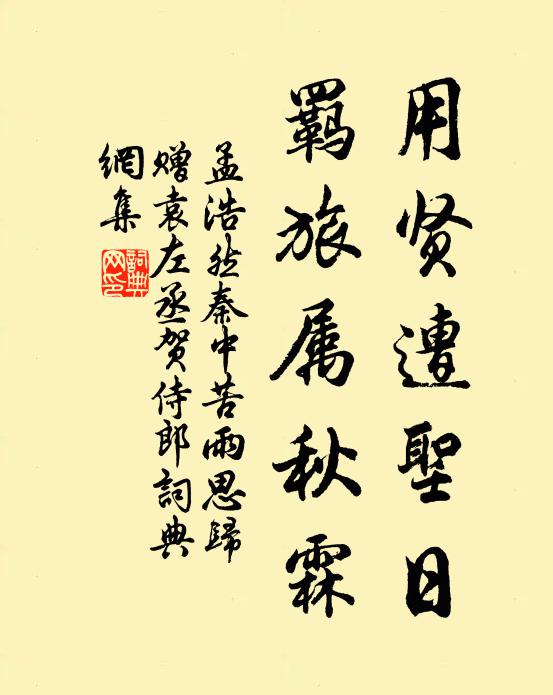 用贤遭聖日
羁旅属秋霖
孟浩然秦中苦雨思歸
赠袁左丞贺侍郎詞典
網集
詞典
网印